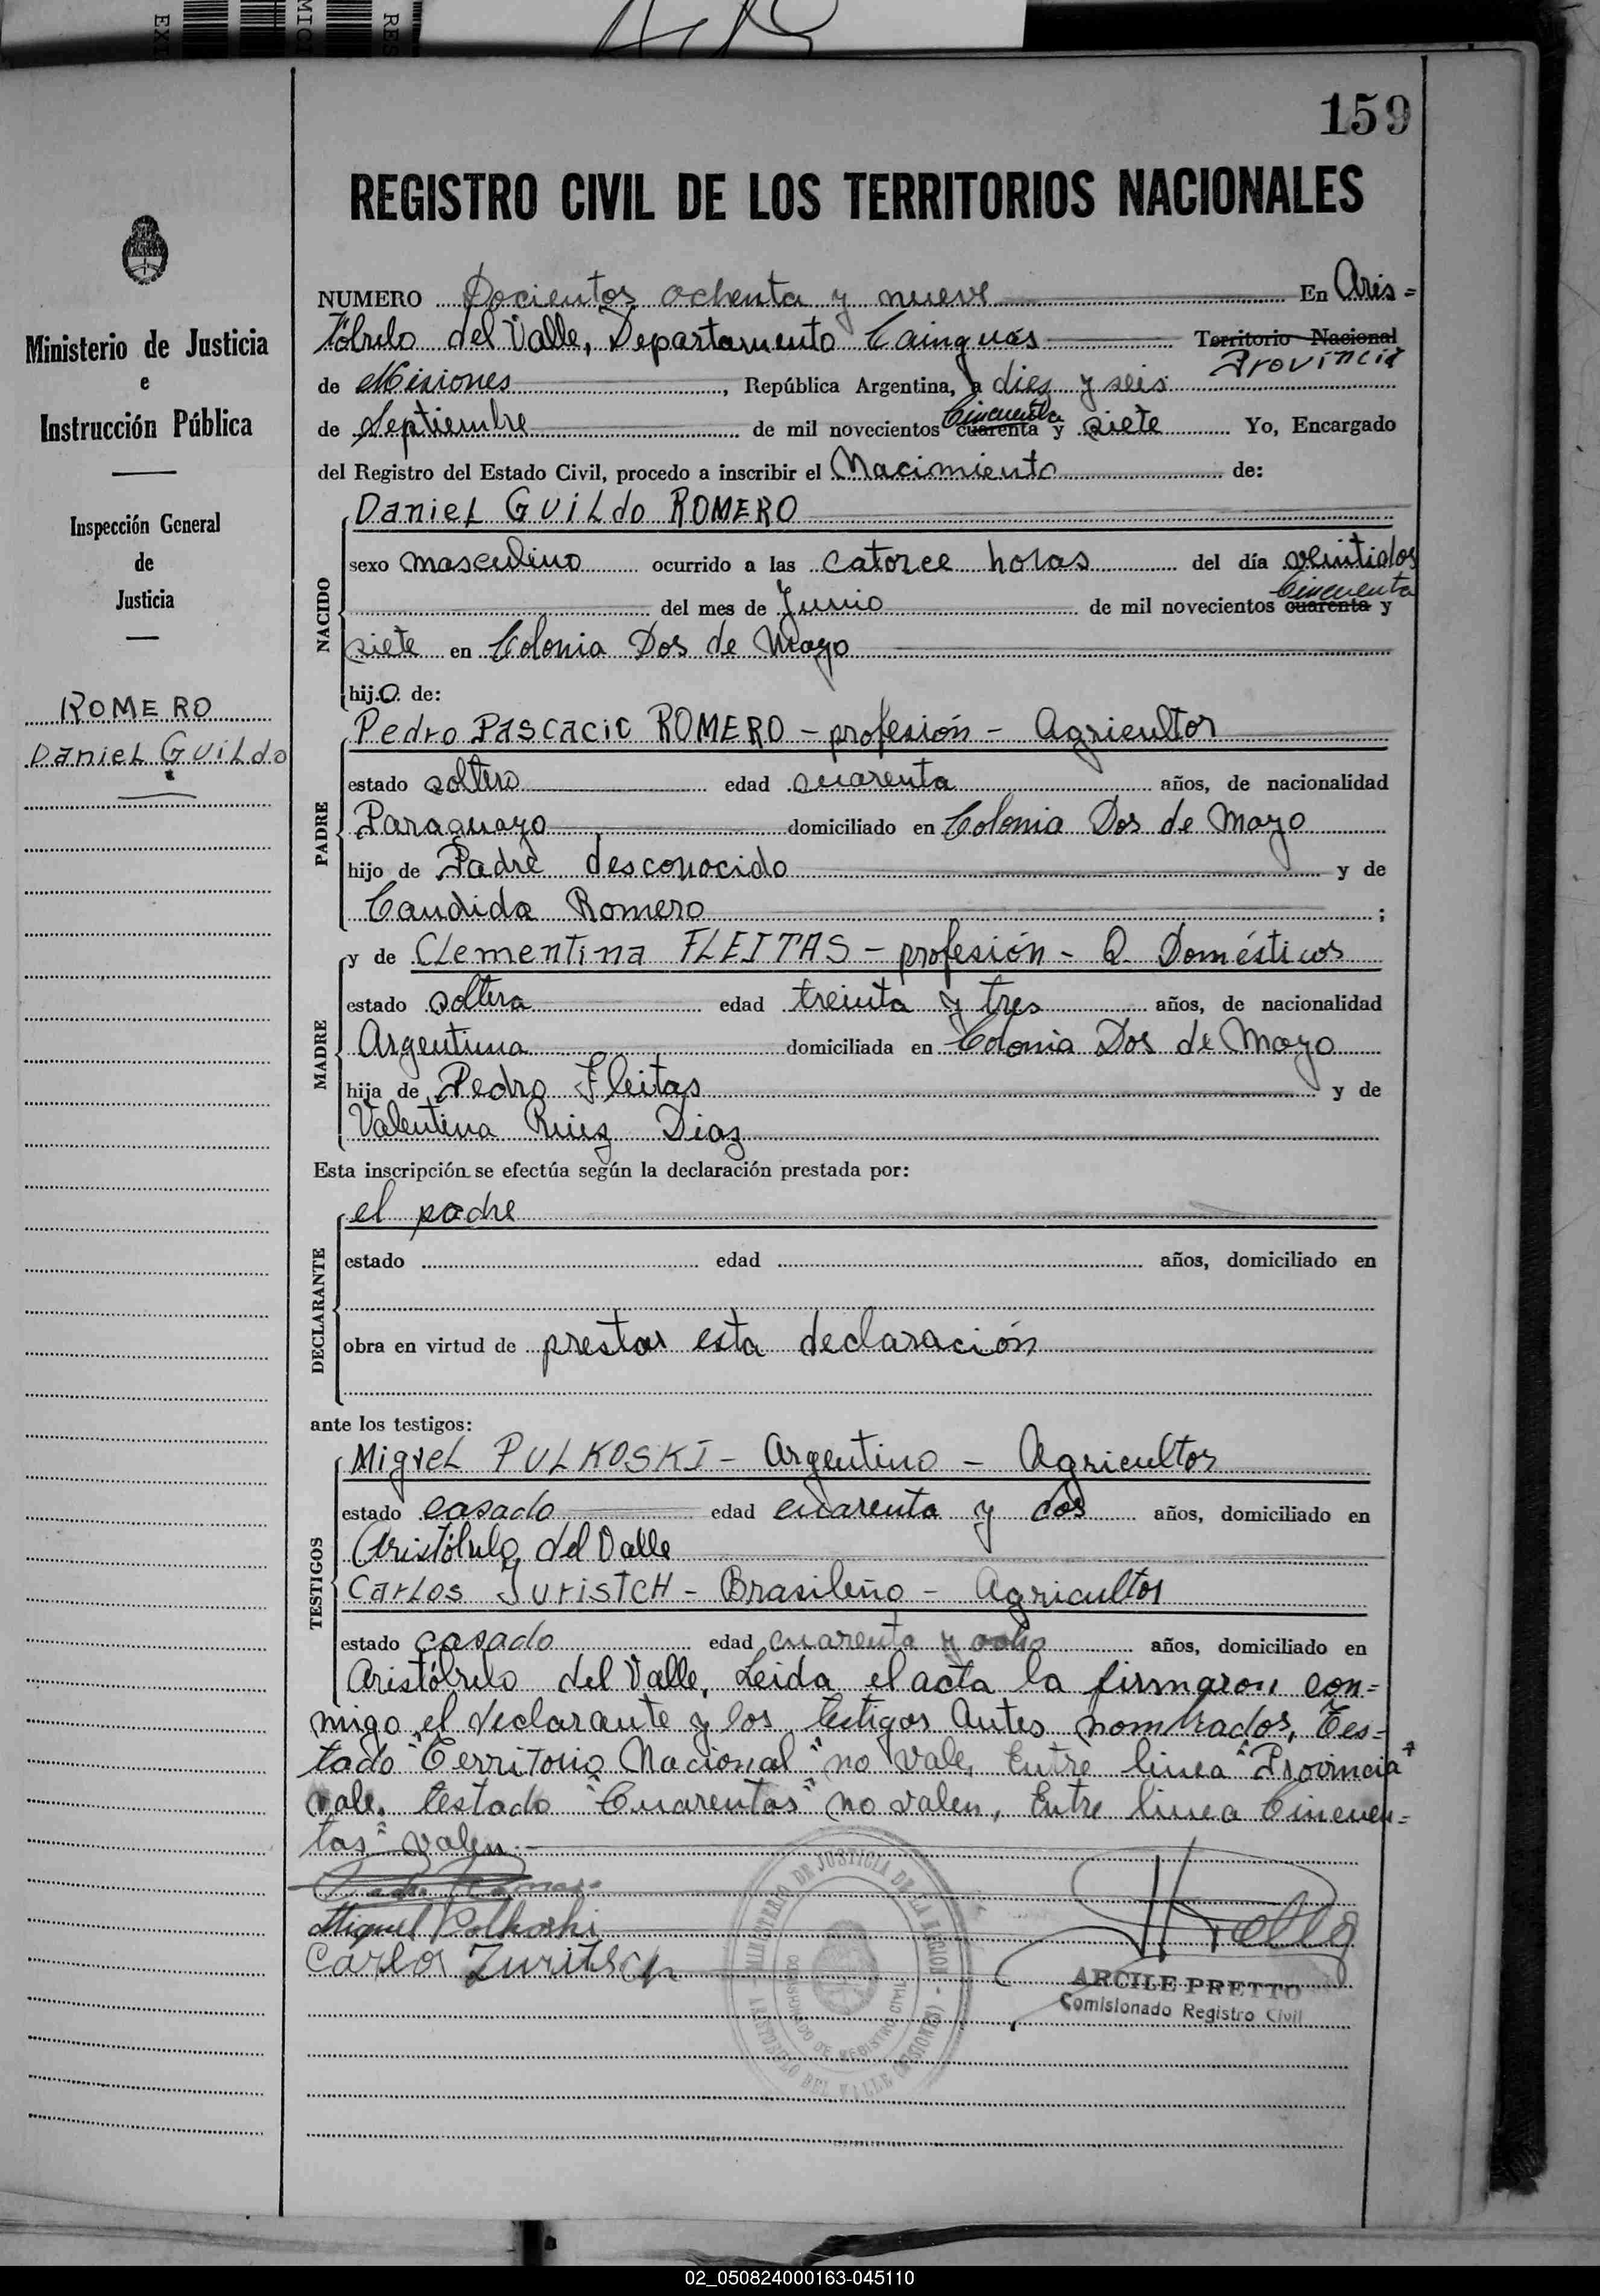 159
REGISTRO CIVIL DE LOS TERRITORIOS NACIONALES
Ministerio de Justicia
e
Instrucción Pública
Inspección General
de
Justicia
ROMERO
Daniel Guildo
NUMERO Docientos ochenta y nueve En Aris=
tóbulo del Valle, Departamento Cainguás Territorio Nacional
Provincia
de Misiones, República Argentina, a dies y seis
de Septiembre de mil novecientos cuarenta Cincuenta y siete Yo, Encargado
del Registro del Estado Civil, procedo a inscribir el Nacimiento de:
NACIDO
Daniel Guildo ROMERO
sexo masculino ocurrido a las catorce horas del día veintidos
del mes de Junio de mil novecientos cuarenta Cincuenta y
siete en Colonia Dos de Mayo
hijo de:
PADRE
Pedro Pascacio ROMERO - profesión - Agricultor
estado soltero edad cuarenta años, de nacionalidad
Paraguayo domiciliado en Colonia Dos de Mayo
hijo de Padre desconocido y de
Candida Romero ;
MADRE
y de Clementina FLEITAS - profesión - Q. Domésticos
estado soltera edad treinta y tres años, de nacionalidad
Argentina domiciliada en Colonia Dos de Mayo
hija de Pedro Fleitas y de
Valentina Ruiz Diaz
Esta inscripción se efectúa según la declaración prestada por:
DECLARANTE
el padre
estado edad años, domiciliado en
obra en virtud de prestar esta declaración
ante los testigos:
TESTIGOS
Miguel PULKOSKI - Argentino - Agricultor
estado casado edad cuarenta y dos años, domiciliado en
Aristóbulo del Valle
Carlos JuristCH - Brasileño - Agricultor
estado casado edad cuarenta y ocho años, domiciliado en
Aristóbulo del Valle, Leida el acta la firmaron con=
migo el declarante y los testigos Antes nombrados, Tes=
tado "Territorio Nacional" no vale, Entre linea "Provincia"
vale. testado "Cuarentas" no valen, Entre linea Cincuen=
tas" valen
Miguel Polkoski
Carlos Zuritsch
MINISTERIO DE JUSTICIA DE LA NACION - ARISTOBULO DEL VALLE (MISIONES)
COMISIONADO DE REGISTRO CIVIL
ARCILE PRETTO
Comisionado Registro Civil
02_050824000163-045110